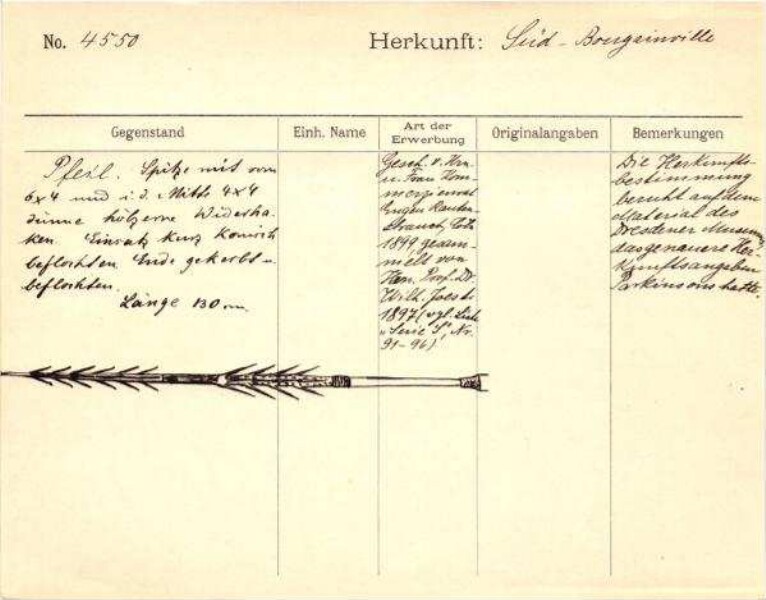 No. 4550
Herkunft: Süd - Bougainville
Gegenstand
Einh. Name
Art der
Erwerbung
Originalangaben
Bemerkungen
Pfeil. Spitze mit vorn
6x4 und i. d. Mitte 4x4
dünne hölzerne Widerha-
ken. Einsatz kurz konisch
beflochten. Ende gekerbt u.
beflochten.
Länge 130 cm
Gesch. v. Hrn.
u. Frau Kom-
merzienrat
Eugen Rauten-
strauch, Cöln
1899 gesam-
melt von
Hrn. Prof. Dr.
Wilh. Joest
1897 (vgl. Liste
"Serie S", Nr.
91-96)
Die Herkunfts-
bestimmung
beruht auf dem
Material des
Dresdener Museums,
das genauere Her-
kunftsangaben
Parkinsons hatte.